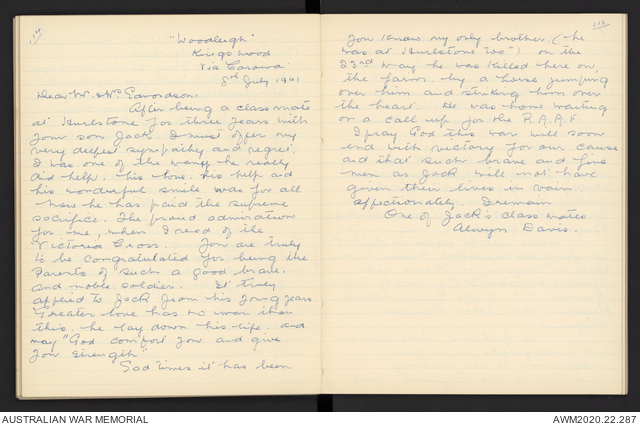 "Woodleigh"
Kingswood
Via Corowa
8th July 1941
Dear Mr. & Mrs. Edmondson.
After being a class mate
at Hurlstone for three years with
your son Jack. I must offer my
very deepest sympathy and regret.
I was one of the many, he really
did help. his his help and
his wonderful smile was for all
Now he has paid the supreme
sacrifice. The proud admiration
for me, when I read of the
Victoria Cross. You are truly
to be congratulated for being the
Parents of such a good brave.
and noble soldier. It truly
applied to Jack from his young years
"Greater love has no man than
this. he lay down his life. and
may "God comfort you and give
you strength"
Sad times it has been
112
You know my only brother. (he
was at Hurlstone too") on the
23rd May he was killed here on
the farm. by a horse jumping
over him and striking him over
the heart. He was home waiting
on a call up for the R.A.A.F
I pray God this war will soon
end with victory for our cause
and that such brave and fine
men as Jack will not have
given their lives in vain.
affectionately. I remain
One of Jack's class mates
Alwyn Davis.
AUSTRALIAN WAR MEMORIAL
AWM2020.22.287